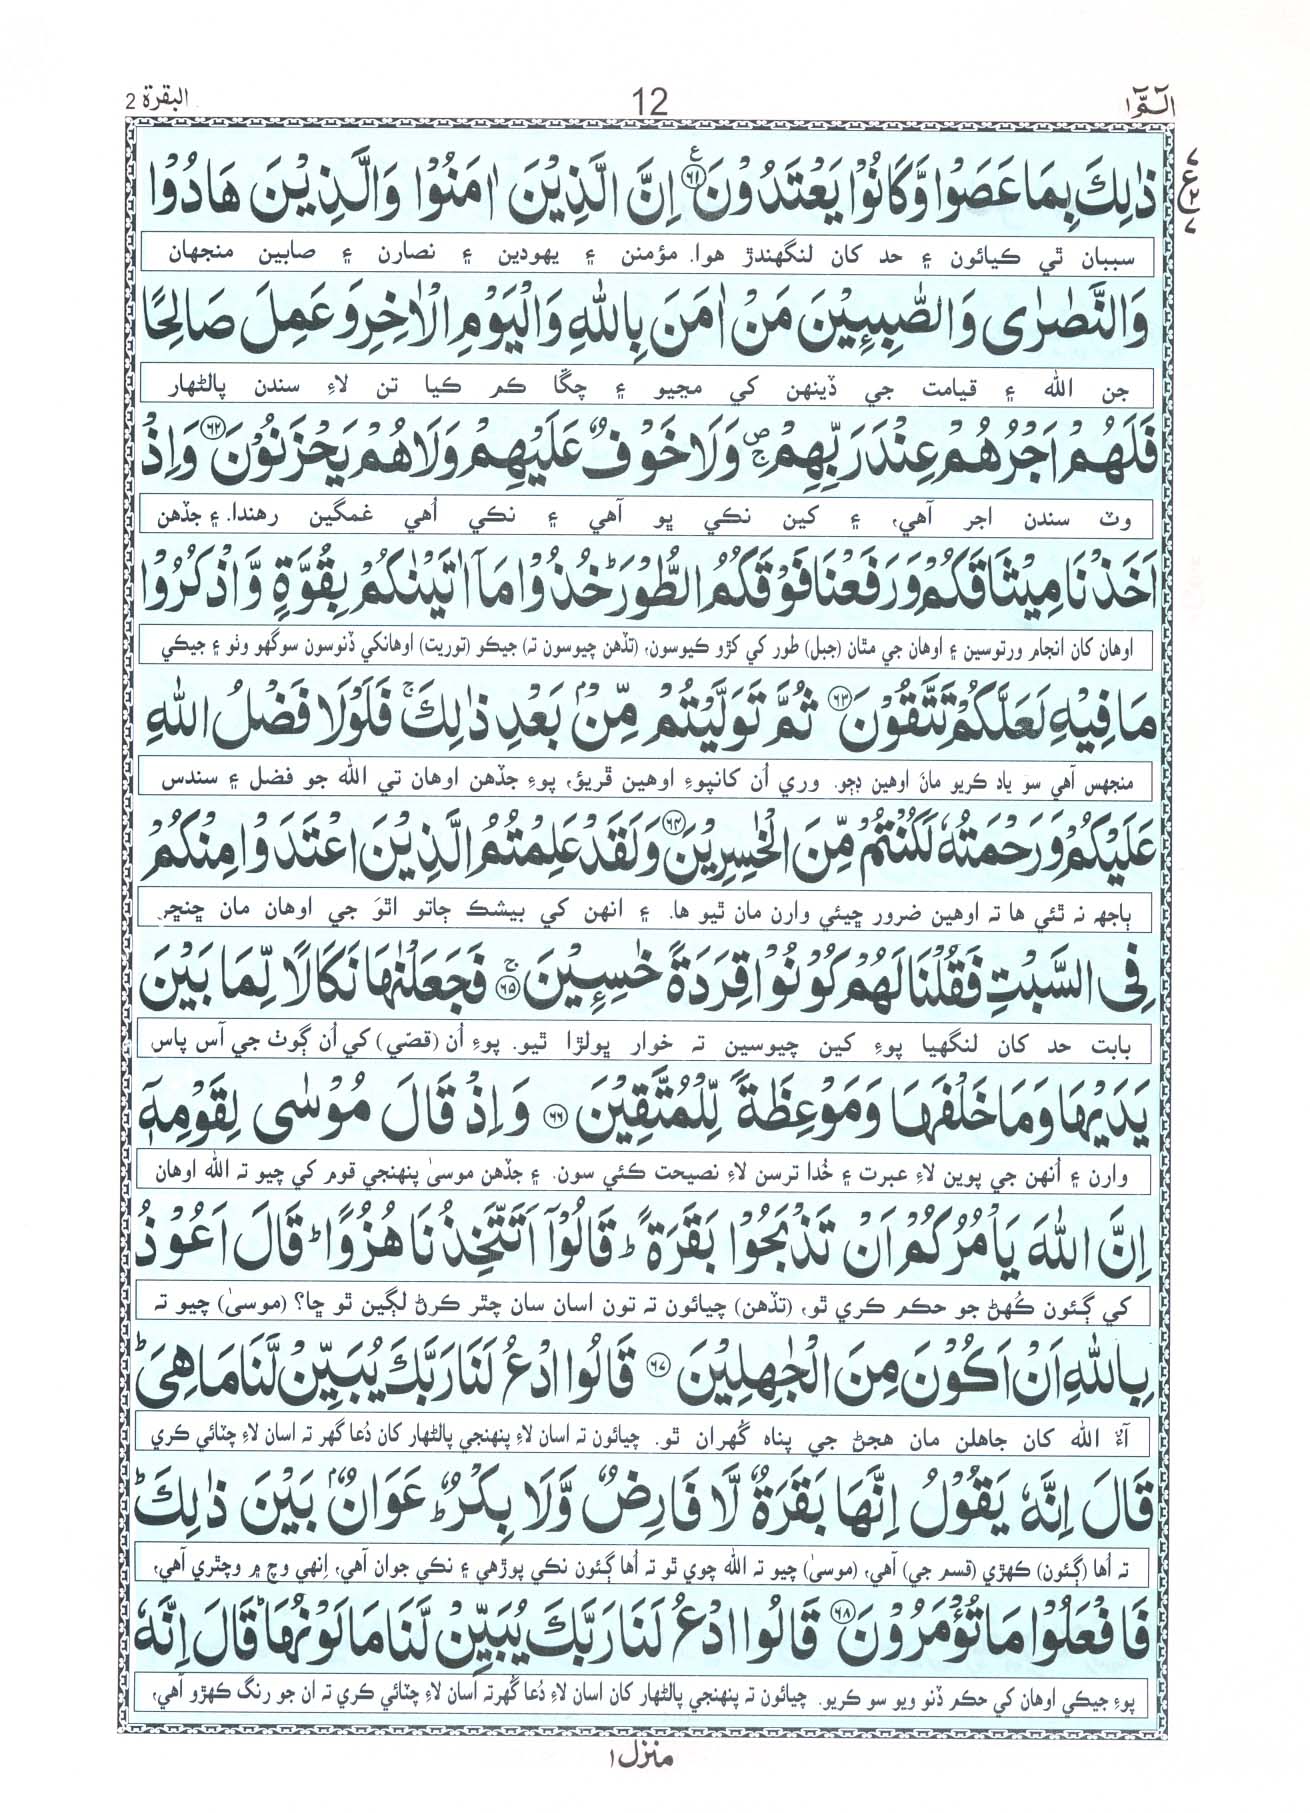 الٓمّٓ ١
12
البقرة 2
ذٰلِكَ بِمَا عَصَوْا وَّكَانُوْا يَعْتَدُوْنَ ﴿٦١﴾ اِنَّ الَّذِيْنَ اٰمَنُوْا وَالَّذِيْنَ هَادُوْا
سببان ٿي ڪيائون ۽ حد کان لنگهندڙ هوا. مؤمنن ۽ يهودين ۽ نصارن ۽ صابين منجهان
وَالنَّصٰرٰى وَالصّٰبِـِٕيْنَ مَنْ اٰمَنَ بِاللّٰهِ وَالْيَوْمِ الْاٰخِرِ وَعَمِلَ صَالِحًا
جن الله ۽ قيامت جي ڏينهن کي مڃيو ۽ چڱا ڪم ڪيا تن لاءِ سندن پالڻهار
فَلَهُمْ اَجْرُهُمْ عِنْدَ رَبِّهِمْ ۖۚ وَلَا خَوْفٌ عَلَيْهِمْ وَلَا هُمْ يَحْزَنُوْنَ ﴿٦٢﴾ وَاِذْ
وٽ سندن اجر آهي، ۽ کين نڪي ڀو آهي ۽ نڪي اُهي غمگين رهندا. ۽ جڏهن
اَخَذْنَا مِيْثَاقَكُمْ وَرَفَعْنَا فَوْقَكُمُ الطُّوْرَ ؕ خُذُوْا مَآ اٰتَيْنٰكُمْ بِقُوَّةٍ وَّاذْكُرُوْا
اوهان کان انجام ورتوسين ۽ اوهان جي مٿان (جبل) طور کي کڙو ڪيوسون، (تڏهن چيوسون ته) جيڪو (توريت) اوهانکي ڏنوسون سوگهو وٺو ۽ جيڪي
مَا فِيْهِ لَعَلَّكُمْ تَتَّقُوْنَ ﴿٦٣﴾ ثُمَّ تَوَلَّيْتُمْ مِّنْۢ بَعْدِ ذٰلِكَ ۚ فَلَوْلَا فَضْلُ اللّٰهِ
منجهس آهي سو ياد ڪريو مانَ اوهين ڊڄو. وري اُن کانپوءِ اوهين ڦريؤ، پوءِ جڏهن اوهان تي الله جو فضل ۽ سندس
عَلَيْكُمْ وَرَحْمَتُهٗ لَكُنْتُمْ مِّنَ الْخٰسِرِيْنَ ﴿٦٤﴾ وَلَقَدْ عَلِمْتُمُ الَّذِيْنَ اعْتَدَوْا مِنْكُمْ
ٻاجهه نه ٿئي ها ته اوهين ضرور ڇيئي وارن مان ٿيو ها. ۽ انهن کي بيشڪ ڄاتو اٿوَ جي اوهان مان ڇنڇر
فِى السَّبْتِ فَقُلْنَا لَهُمْ كُوْنُوْا قِرَدَةً خٰسِـِٕيْنَ ۚ﴿٦٥﴾ فَجَعَلْنٰهَا نَكَالًا لِّمَا بَيْنَ
بابت حد کان لنگهيا پوءِ کين چيوسين ته خوار ڀولڙا ٿيو. پوءِ اُن (قصّي) کي اُن ڳوٺ جي آس پاس
يَدَيْهَا وَمَا خَلْفَهَا وَمَوْعِظَةً لِّلْمُتَّقِيْنَ ﴿٦٦﴾ وَاِذْ قَالَ مُوْسٰى لِقَوْمِهٖٓ
وارن ۽ اُنهن جي پوين لاءِ عبرت ۽ خُدا ترسن لاءِ نصيحت ڪئي سون. ۽ جڏهن موسيٰ پنهنجي قوم کي چيو ته الله اوهان
اِنَّ اللّٰهَ يَاْمُرُكُمْ اَنْ تَذْبَحُوْا بَقَرَةً ؕ قَالُوْٓا اَتَتَّخِذُنَا هُزُوًا ؕ قَالَ اَعُوْذُ
کي ڳئون ڪُهڻ جو حڪم ڪري ٿو، (تڏهن) چيائون ته تون اسان سان چٿر ڪرڻ لڳين ٿو ڇا؟ (موسيٰ) چيو ته
بِاللّٰهِ اَنْ اَكُوْنَ مِنَ الْجٰهِلِيْنَ ﴿٦٧﴾ قَالُوا ادْعُ لَنَا رَبَّكَ يُبَيِّنْ لَّنَا مَا هِىَ ؕ
آءٌ الله کان جاهلن مان هجڻ جي پناه گُهران ٿو. چيائون ته اسان لاءِ پنهنجي پالڻهار کان دُعا گهر ته اسان لاءِ چٽائي ڪري
قَالَ اِنَّهٗ يَقُوْلُ اِنَّهَا بَقَرَةٌ لَّا فَارِضٌ وَّلَا بِكْرٌ ؕ عَوَانٌۢ بَيْنَ ذٰلِكَ ؕ
ته اُها (ڳئون) ڪهڙي (قسم جي) آهي، (موسيٰ) چيو ته الله چوي ٿو ته اُها ڳئون نڪي پوڙهي ۽ نڪي جوان آهي، اِنهي وچ ۾ وچٿري آهي،
فَافْعَلُوْا مَا تُؤْمَرُوْنَ ﴿٦٨﴾ قَالُوا ادْعُ لَنَا رَبَّكَ يُبَيِّنْ لَّنَا مَا لَوْنُهَا ؕ قَالَ اِنَّهٗ
پوءِ جيڪي اوهان کي حڪم ڏنو ويو سو ڪريو. چيائون ته پنهنجي پالڻهار کان اسان لاءِ دُعا گُهرته اسان لاءِ چٽائي ڪري ته ان جو رنگ ڪهڙو آهي،
منزل ١